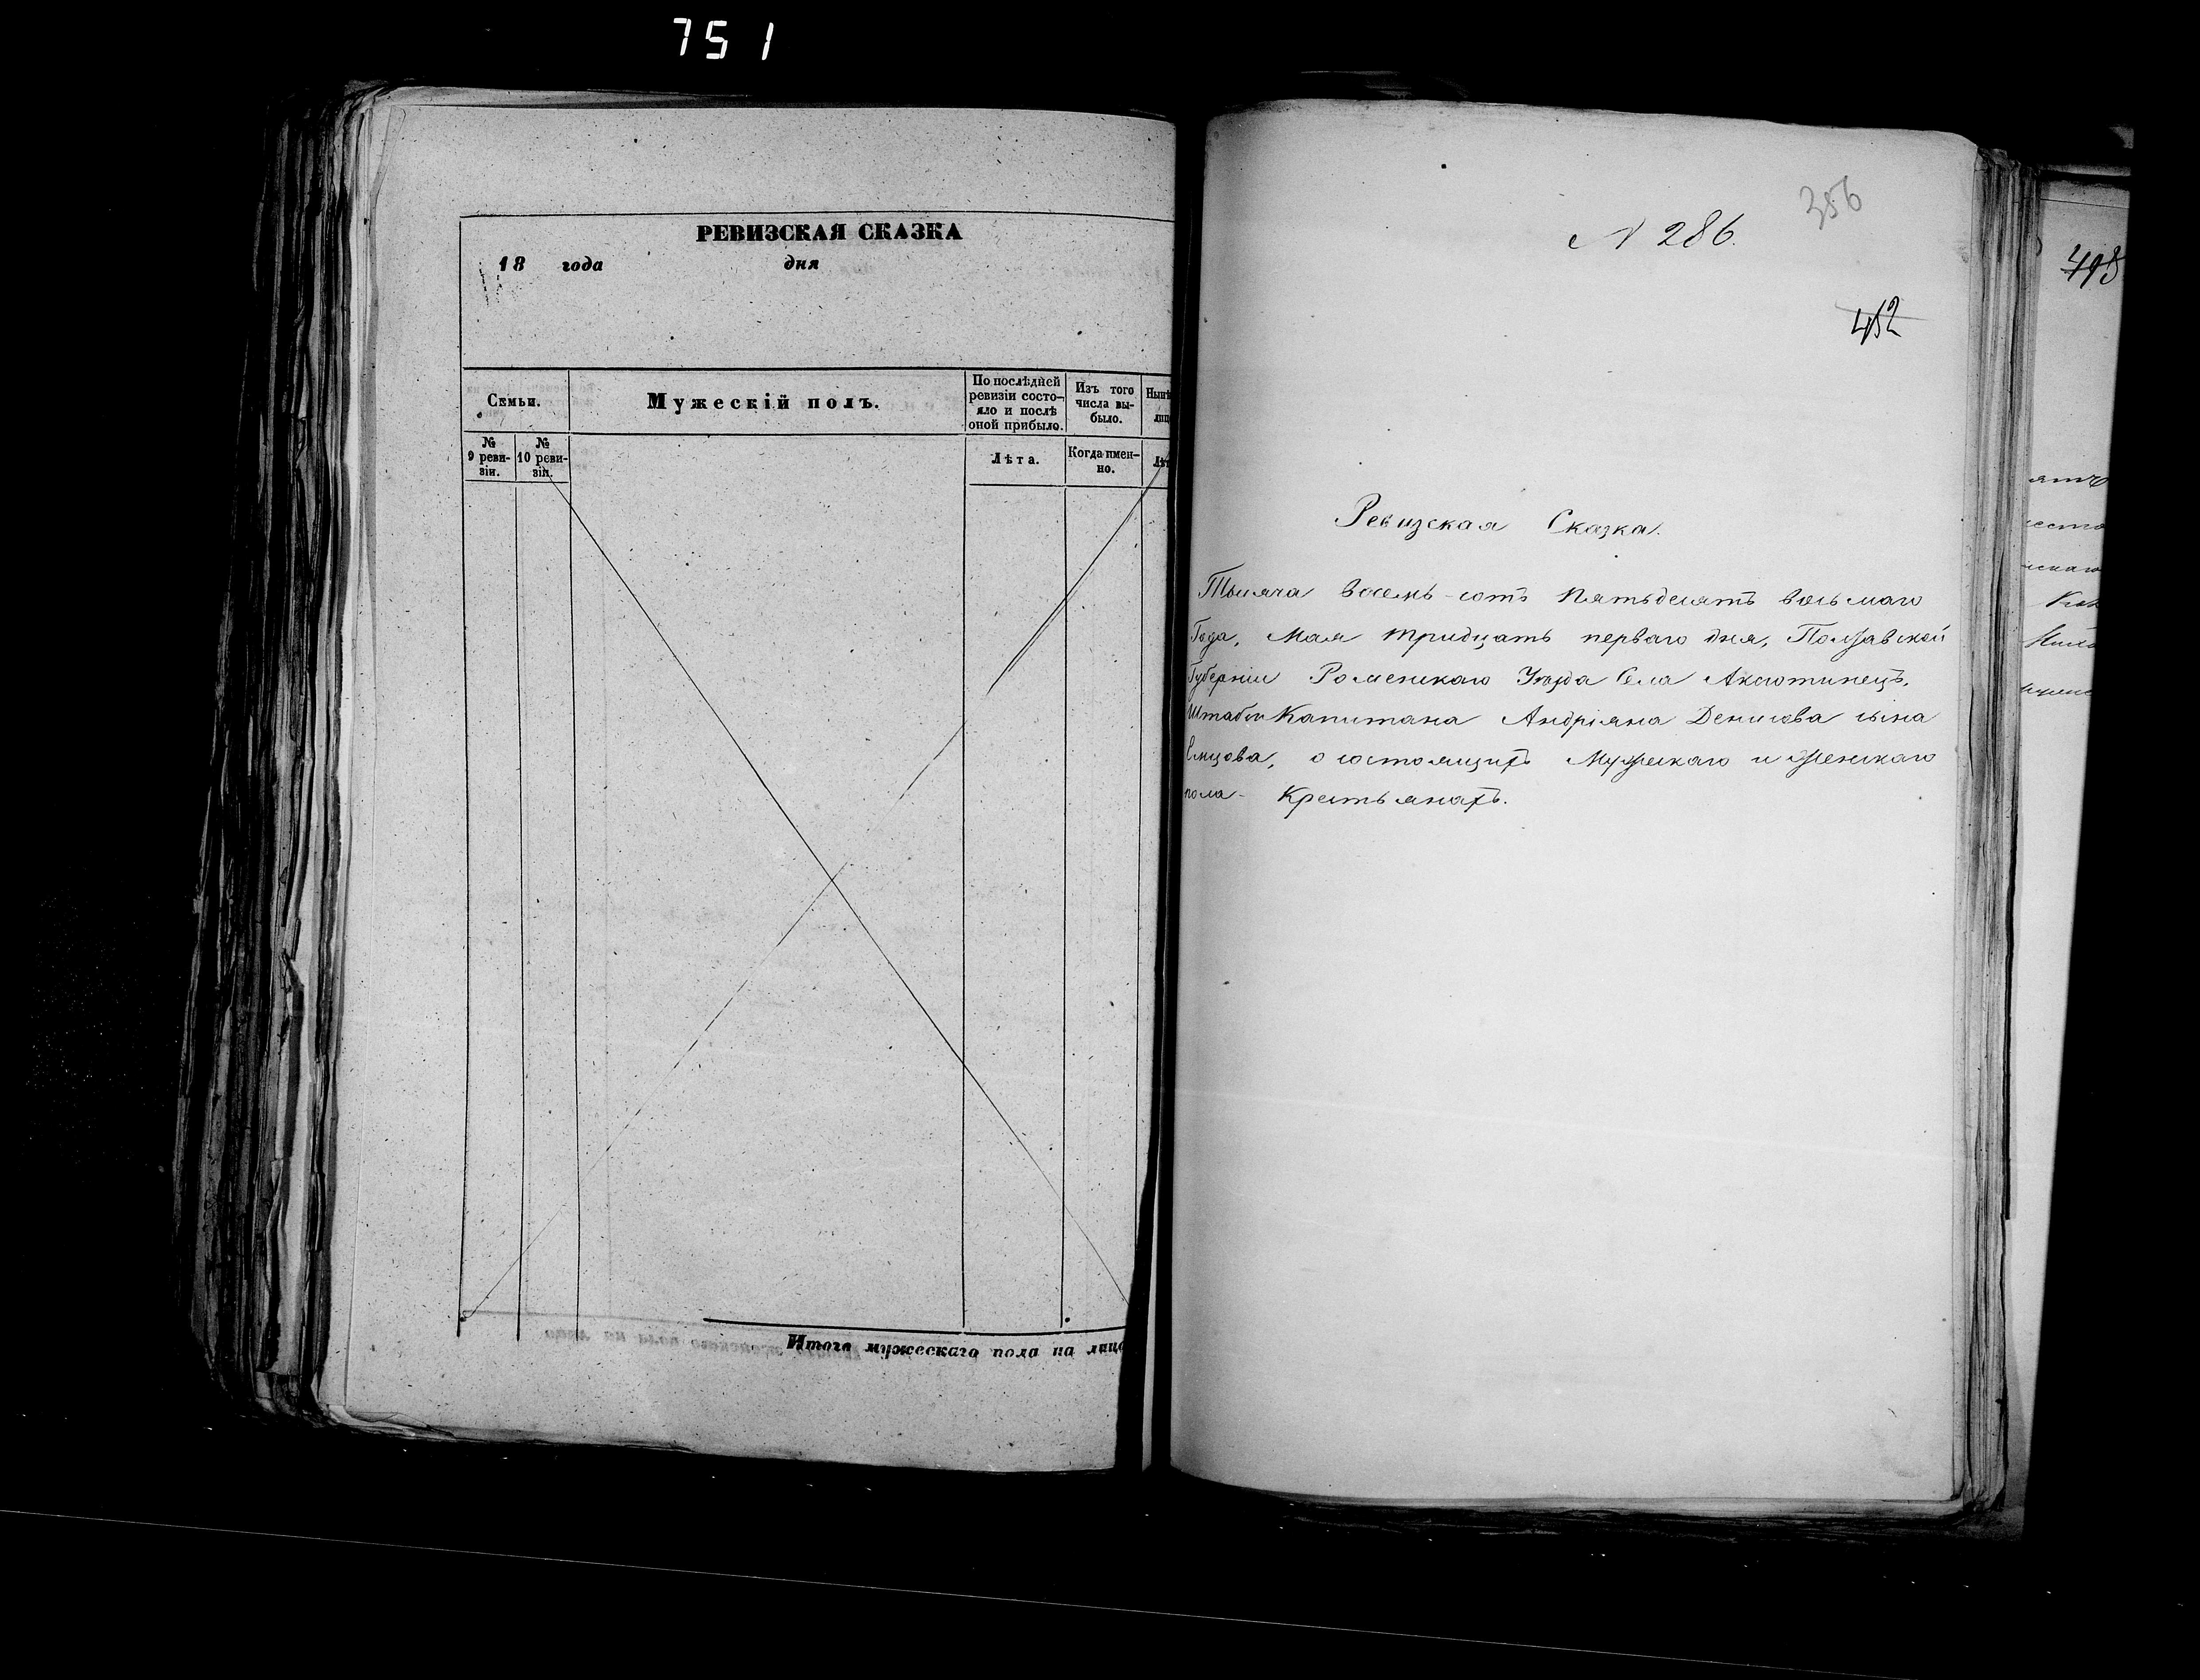 751
РЕВИЗСКАЯ СКАЗКА
18 года дня
Семьи.
Мужескій полъ.
По послѣдней ревизіи состо-
яло и послѣ
оной прибыло.
Изъ того
числа вы-
было.
№
9 реви-
зіи.
№
10 реви-
зіи.
Лѣта.
Когда имен-
но.
Итого мужескаго пола на лицо
356
N 286.
452
Ревизская Сказка.
Тысяча восемь-сотъ Пятьдесятъ восьмаго
Года, Мая тридцать перваго дня, Полтавской
Губерніи Роменскаго Уѣзда Села Аксютинецъ,
Штабсъ Капитана Андріяна Денисова сына
Емцова, о состоящихъ Мужескаго и Женскаго
пола - Крестьянахъ.